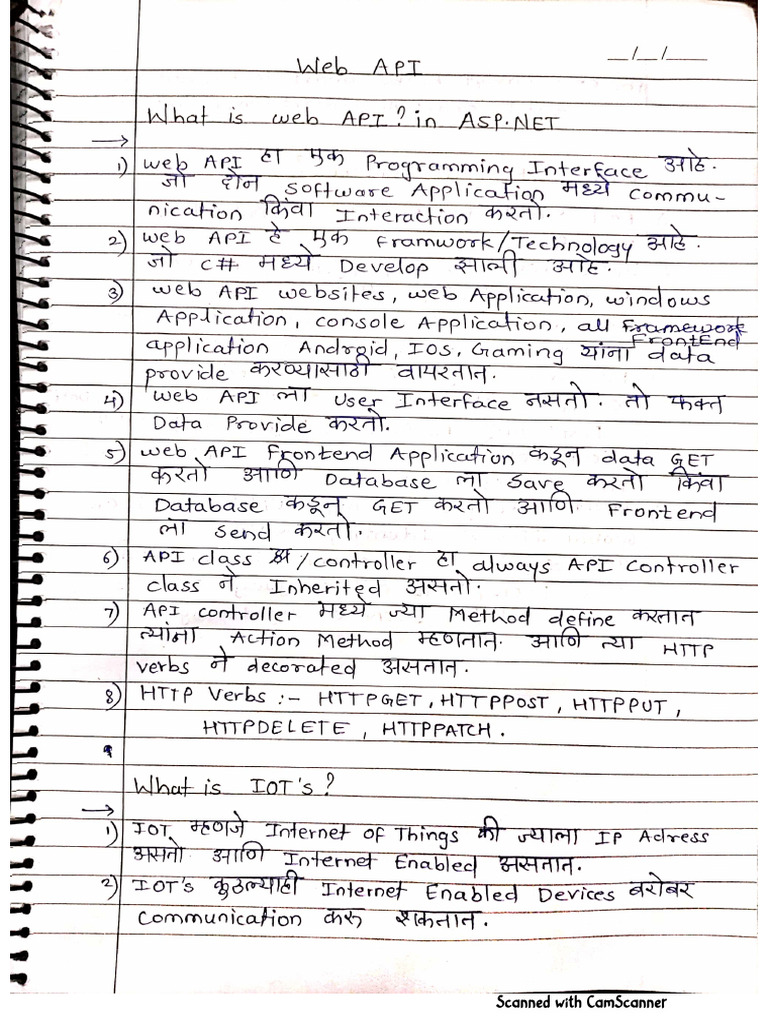 __/__/____
Web API
What is web API? in ASP.NET
→
1) Web API हा एक Programming Interface आहे.
जो दोन Software Application मध्ये commu-
nication किंवा Interaction करतो.
2) web API हे एक Framwork/Technology आहे.
जो C# मध्ये Develop झाली आहे.
3) web API websites, web Application, windows
Application, console Application, all Framework
FrontEnd
application Android, IOS, Gaming यांना data
provide करण्यासाठी वापरतात.
4) Web API ला User Interface नसतो. तो फक्त
Data Provide करतो.
5) web API Frontend Application कडून data GET
करतो आणि Database ला Save करतो किंवा
Database कडून GET करतो आणि Frontend
ला Send करतो.
6) API class /controller हा always API Controller
class ने Inherited असतो.
7) API controller मध्ये ज्या Method define करतात
त्यांना Action Method म्हणतात. आणि त्या HTTP
verbs ने decorated असतात.
8) HTTP Verbs :- HTTPGET, HTTPPOST, HTTPPUT,
HTTPDELETE, HTTPPATCH.
What is IOT's?
→
1) IOT म्हणजे Internet of Things की ज्याला IP Adress
असतो आणि Internet Enabled असतात.
2) IOT's कुठल्याही Internet Enabled Devices बरोबर
Communication करू शकतात.
Scanned with CamScanner